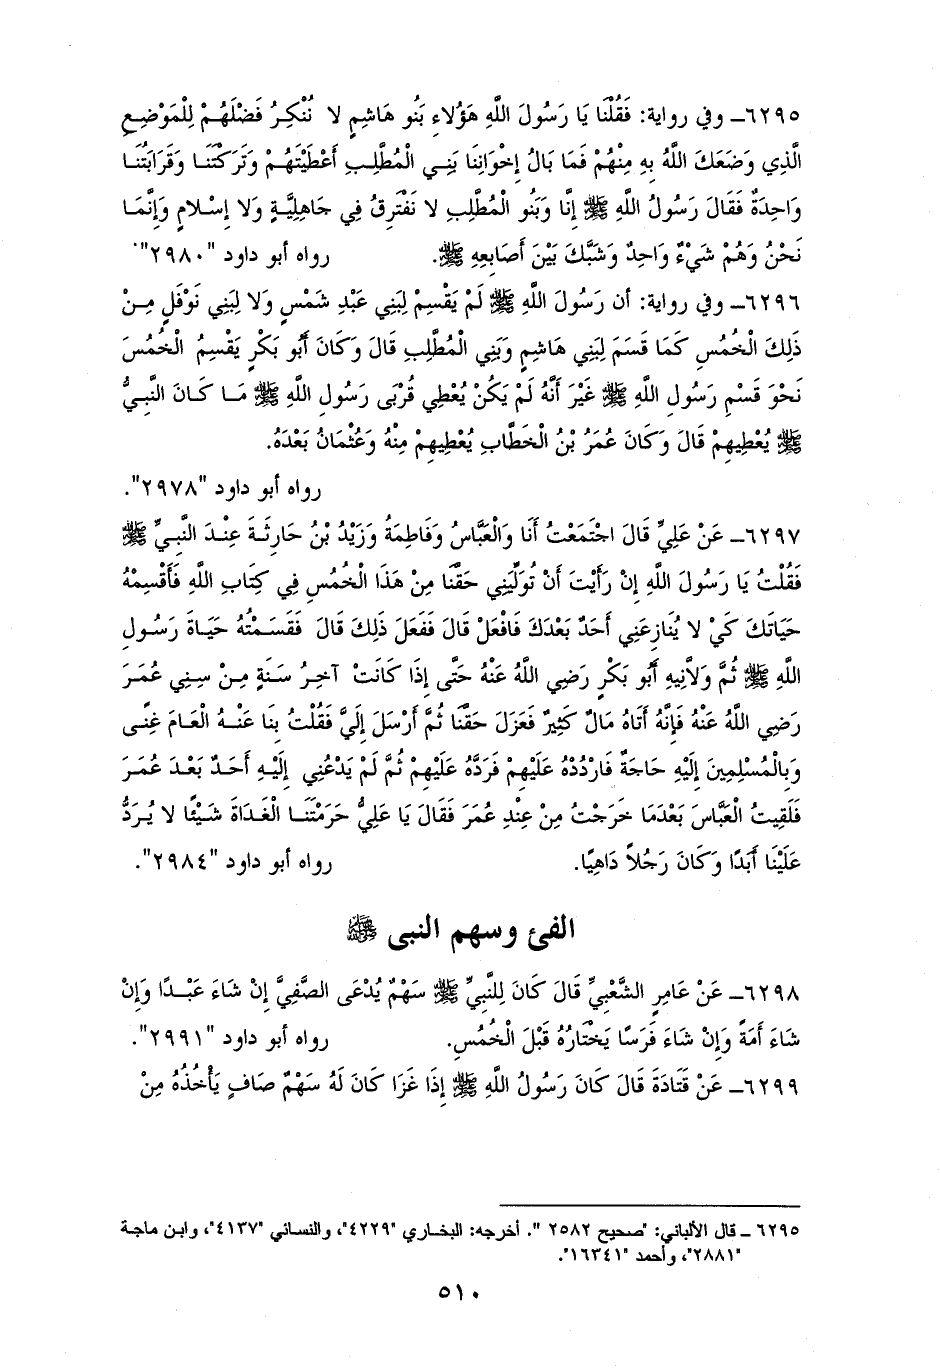 ٦٢٩٥ـ وفي رواية: فَقُلْنَا يَا رَسُولَ اللَّهِ هَؤُلاءِ بَنُو هَاشِمٍ لا نُنْكِرُ فَضْلَهُمْ لِلْمَوْضِعِ
الَّذِي وَضَعَكَ اللَّهُ بِهِ مِنْهُمْ فَمَا بَالُ إِخْوَانِنَا بَنِي الْمُطَّلِبِ أَعْطَيْتَهُمْ وَتَرَكْتَنَا وَقَرَابَتُنَا
وَاحِدَةٌ فَقَالَ رَسُولُ اللَّهِ ﷺ إِنَّا وَبَنُو الْمُطَّلِبِ لا نَفْتَرِقُ فِي جَاهِلِيَّةٍ وَلا إِسْلامٍ وَإِنَّمَا
نَحْنُ وَهُمْ شَيْءٌ وَاحِدٌ وَشَبَّكَ بَيْنَ أَصَابِعِهِ ﷺ. رواه أبو داود "٢٩٨٠".
٦٢٩٦ـ وفي رواية: أن رَسُولَ اللَّهِ ﷺ لَمْ يَقْسِمْ لِبَنِي عَبْدِ شَمْسٍ وَلا لِبَنِي نَوْفَلٍ مِنْ
ذَلِكَ الْخُمُسِ كَمَا قَسَمَ لِبَنِي هَاشِمٍ وَبَنِي الْمُطَّلِبِ قَالَ وَكَانَ أَبُو بَكْرٍ يَقْسِمُ الْخُمُسَ
نَحْوَ قَسْمِ رَسُولِ اللَّهِ ﷺ غَيْرَ أَنَّهُ لَمْ يَكُنْ يُعْطِي قُرْبَى رَسُولِ اللَّهِ ﷺ مَا كَانَ النَّبِيُّ
ﷺ يُعْطِيهِمْ قَالَ وَكَانَ عُمَرُ بْنُ الْخَطَّابِ يُعْطِيهِمْ مِنْهُ وَعُثْمَانُ بَعْدَهُ.
رواه أبو داود "٢٩٧٨".
٦٢٩٧ـ عَنْ عَلِيٍّ قَالَ اجْتَمَعْتُ أَنَا وَالْعَبَّاسُ وَفَاطِمَةُ وَزَيْدُ بْنُ حَارِثَةَ عِنْدَ النَّبِيِّ ﷺ
فَقُلْتُ يَا رَسُولَ اللَّهِ إِنْ رَأَيْتَ أَنْ تُوَلِّيَنِي حَقَّنَا مِنْ هَذَا الْخُمُسِ فِي كِتَابِ اللَّهِ فَأَقْسِمْهُ
حَيَاتَكَ كَيْ لا يُنَازِعَنِي أَحَدٌ بَعْدَكَ فَافْعَلْ قَالَ فَفَعَلَ ذَلِكَ قَالَ فَقَسَمْتُهُ حَيَاةَ رَسُولِ
اللَّهِ ﷺ ثُمَّ وَلاَّنِيهِ أَبُو بَكْرٍ رَضِي اللَّهُ عَنْهُ حَتَّى إِذَا كَانَتْ آخِرُ سَنَةٍ مِنْ سِنِي عُمَرَ
رَضِي اللَّهُ عَنْهُ فَإِنَّهُ أَتَاهُ مَالٌ كَثِيرٌ فَعَزَلَ حَقَّنَا ثُمَّ أَرْسَلَ إِلَيَّ فَقُلْتُ بِنَا عَنْهُ الْعَامَ غِنًى
وَبِالْمُسْلِمِينَ إِلَيْهِ حَاجَةٌ فَارْدُدْهُ عَلَيْهِمْ فَرَدَّهُ عَلَيْهِمْ ثُمَّ لَمْ يَدْعُنِي إِلَيْهِ أَحَدٌ بَعْدَ عُمَرَ
فَلَقِيتُ الْعَبَّاسَ بَعْدَمَا خَرَجْتُ مِنْ عِنْدِ عُمَرَ فَقَالَ يَا عَلِيُّ حَرَمْتَنَا الْغَدَاةَ شَيْئًا لا يُرَدُّ
عَلَيْنَا أَبَدًا وَكَانَ رَجُلاً دَاهِيًا. رواه أبو داود "٢٩٨٤".
الفئ وسهم النبى ﷺ
٦٢٩٨ـ عَنْ عَامِرٍ الشَّعْبِيِّ قَالَ كَانَ لِلنَّبِيِّ ﷺ سَهْمٌ يُدْعَى الصَّفِيَّ إِنْ شَاءَ عَبْدًا وَإِنْ
شَاءَ أَمَةً وَإِنْ شَاءَ فَرَسًا يَخْتَارُهُ قَبْلَ الْخُمُسِ. رواه أبو داود "٢٩٩١".
٦٢٩٩ـ عَنْ قَتَادَةَ قَالَ كَانَ رَسُولُ اللَّهِ ﷺ إِذَا غَزَا كَانَ لَهُ سَهْمٌ صَافٍ يَأْخُذُهُ مِنْ
٦٢٩٥ ـ قال الألباني: "صحيح ٢٥٨٢ ". أخرجه: البخاري "٤٢٢٩"، والنسائي "٤١٣٧"، وابن ماجة
"٢٨٨١"، وأحمد "١٦٣٤١".
٥١٠